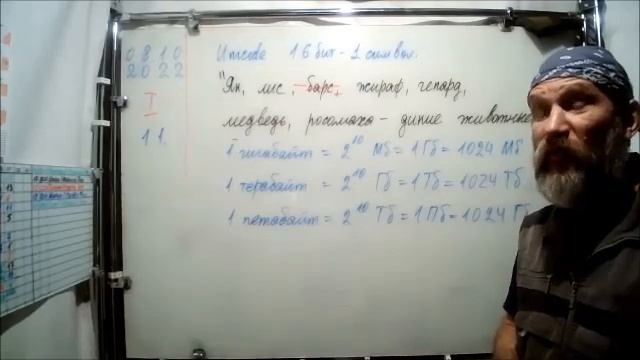 0 8 1 0
2 0 2 2
I
1 1.
Unicode 16 бит - 1 символ.
"Ян, лис, барс, жираф, гепард,
медведь, росомаха - дикие животные
1 гигабайт = 2^10 Мб = 1 Гб = 1024 Мб
1 терабайт = 2^10 Гб = 1 Тб = 1024 Тб
1 петабайт = 2^10 Тб = 1 Пб = 1024 Гб